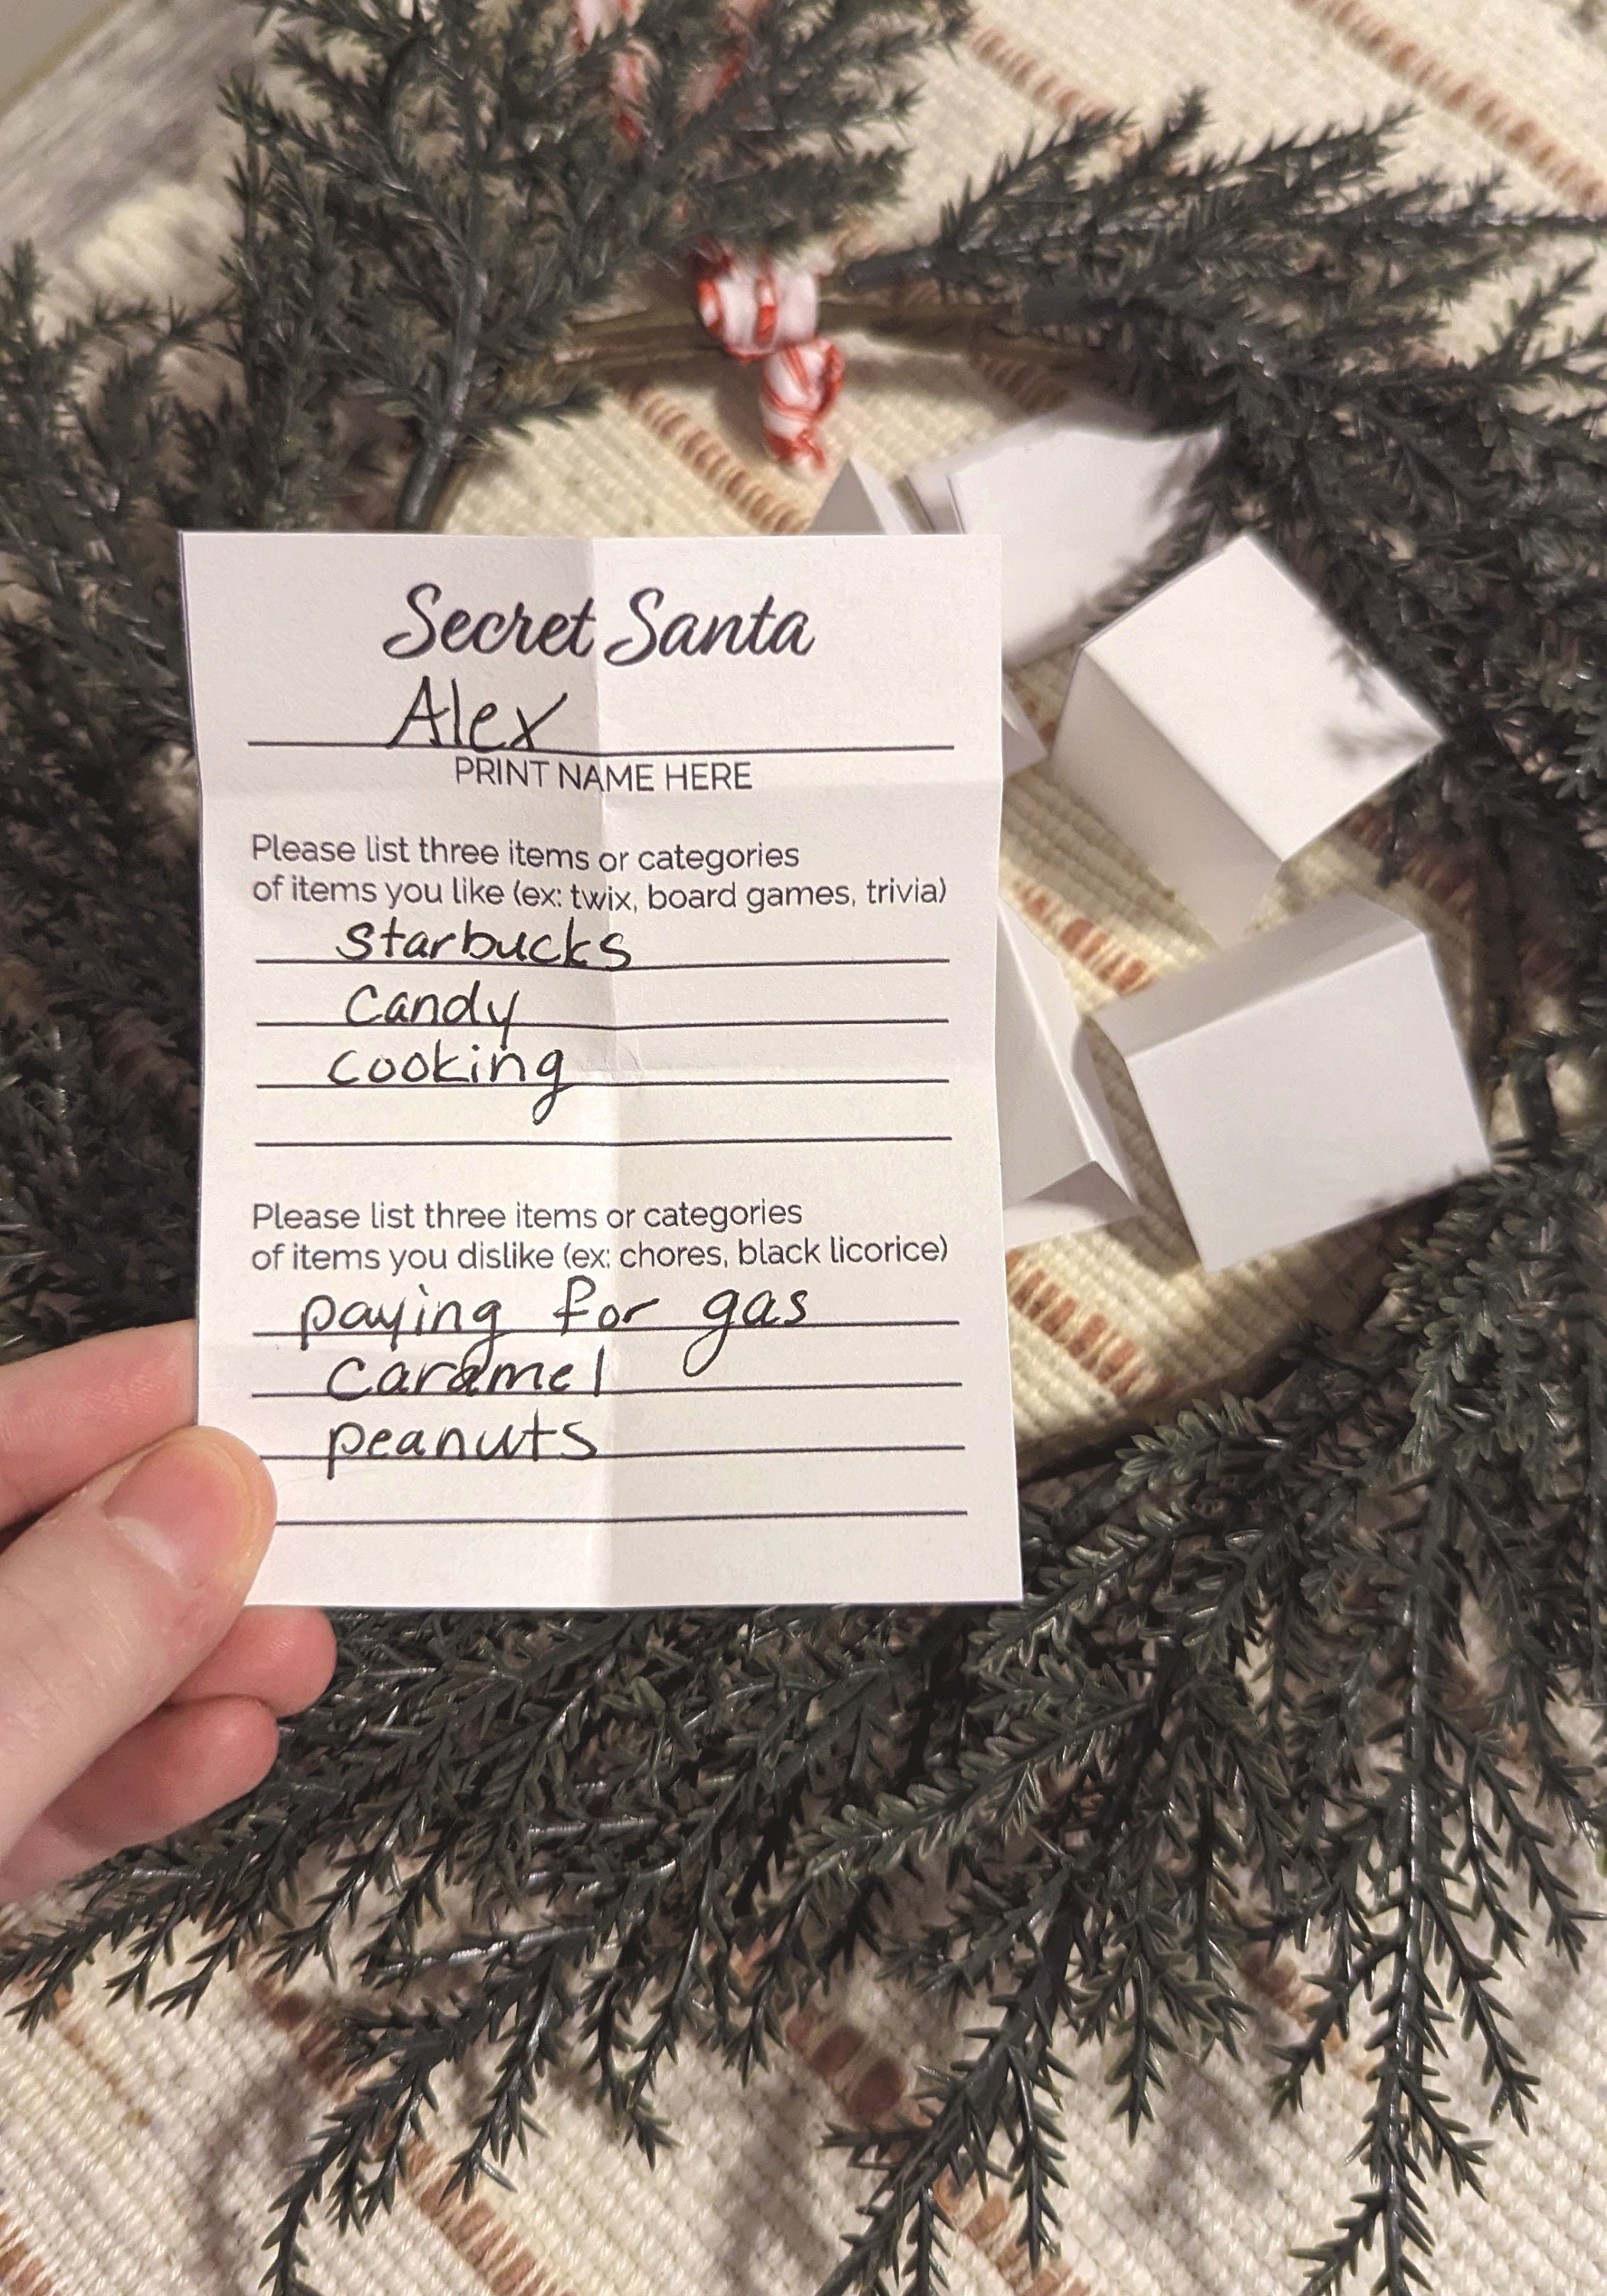 Secret Santa
Alex
PRINT NAME HERE
Please list three items or categories
of items you like (ex: twix, board games, trivia)
starbucks
candy
cooking
Please list three items or categories
of items you dislike (ex: chores, black licorice)
paying for gas
caramel
peanuts